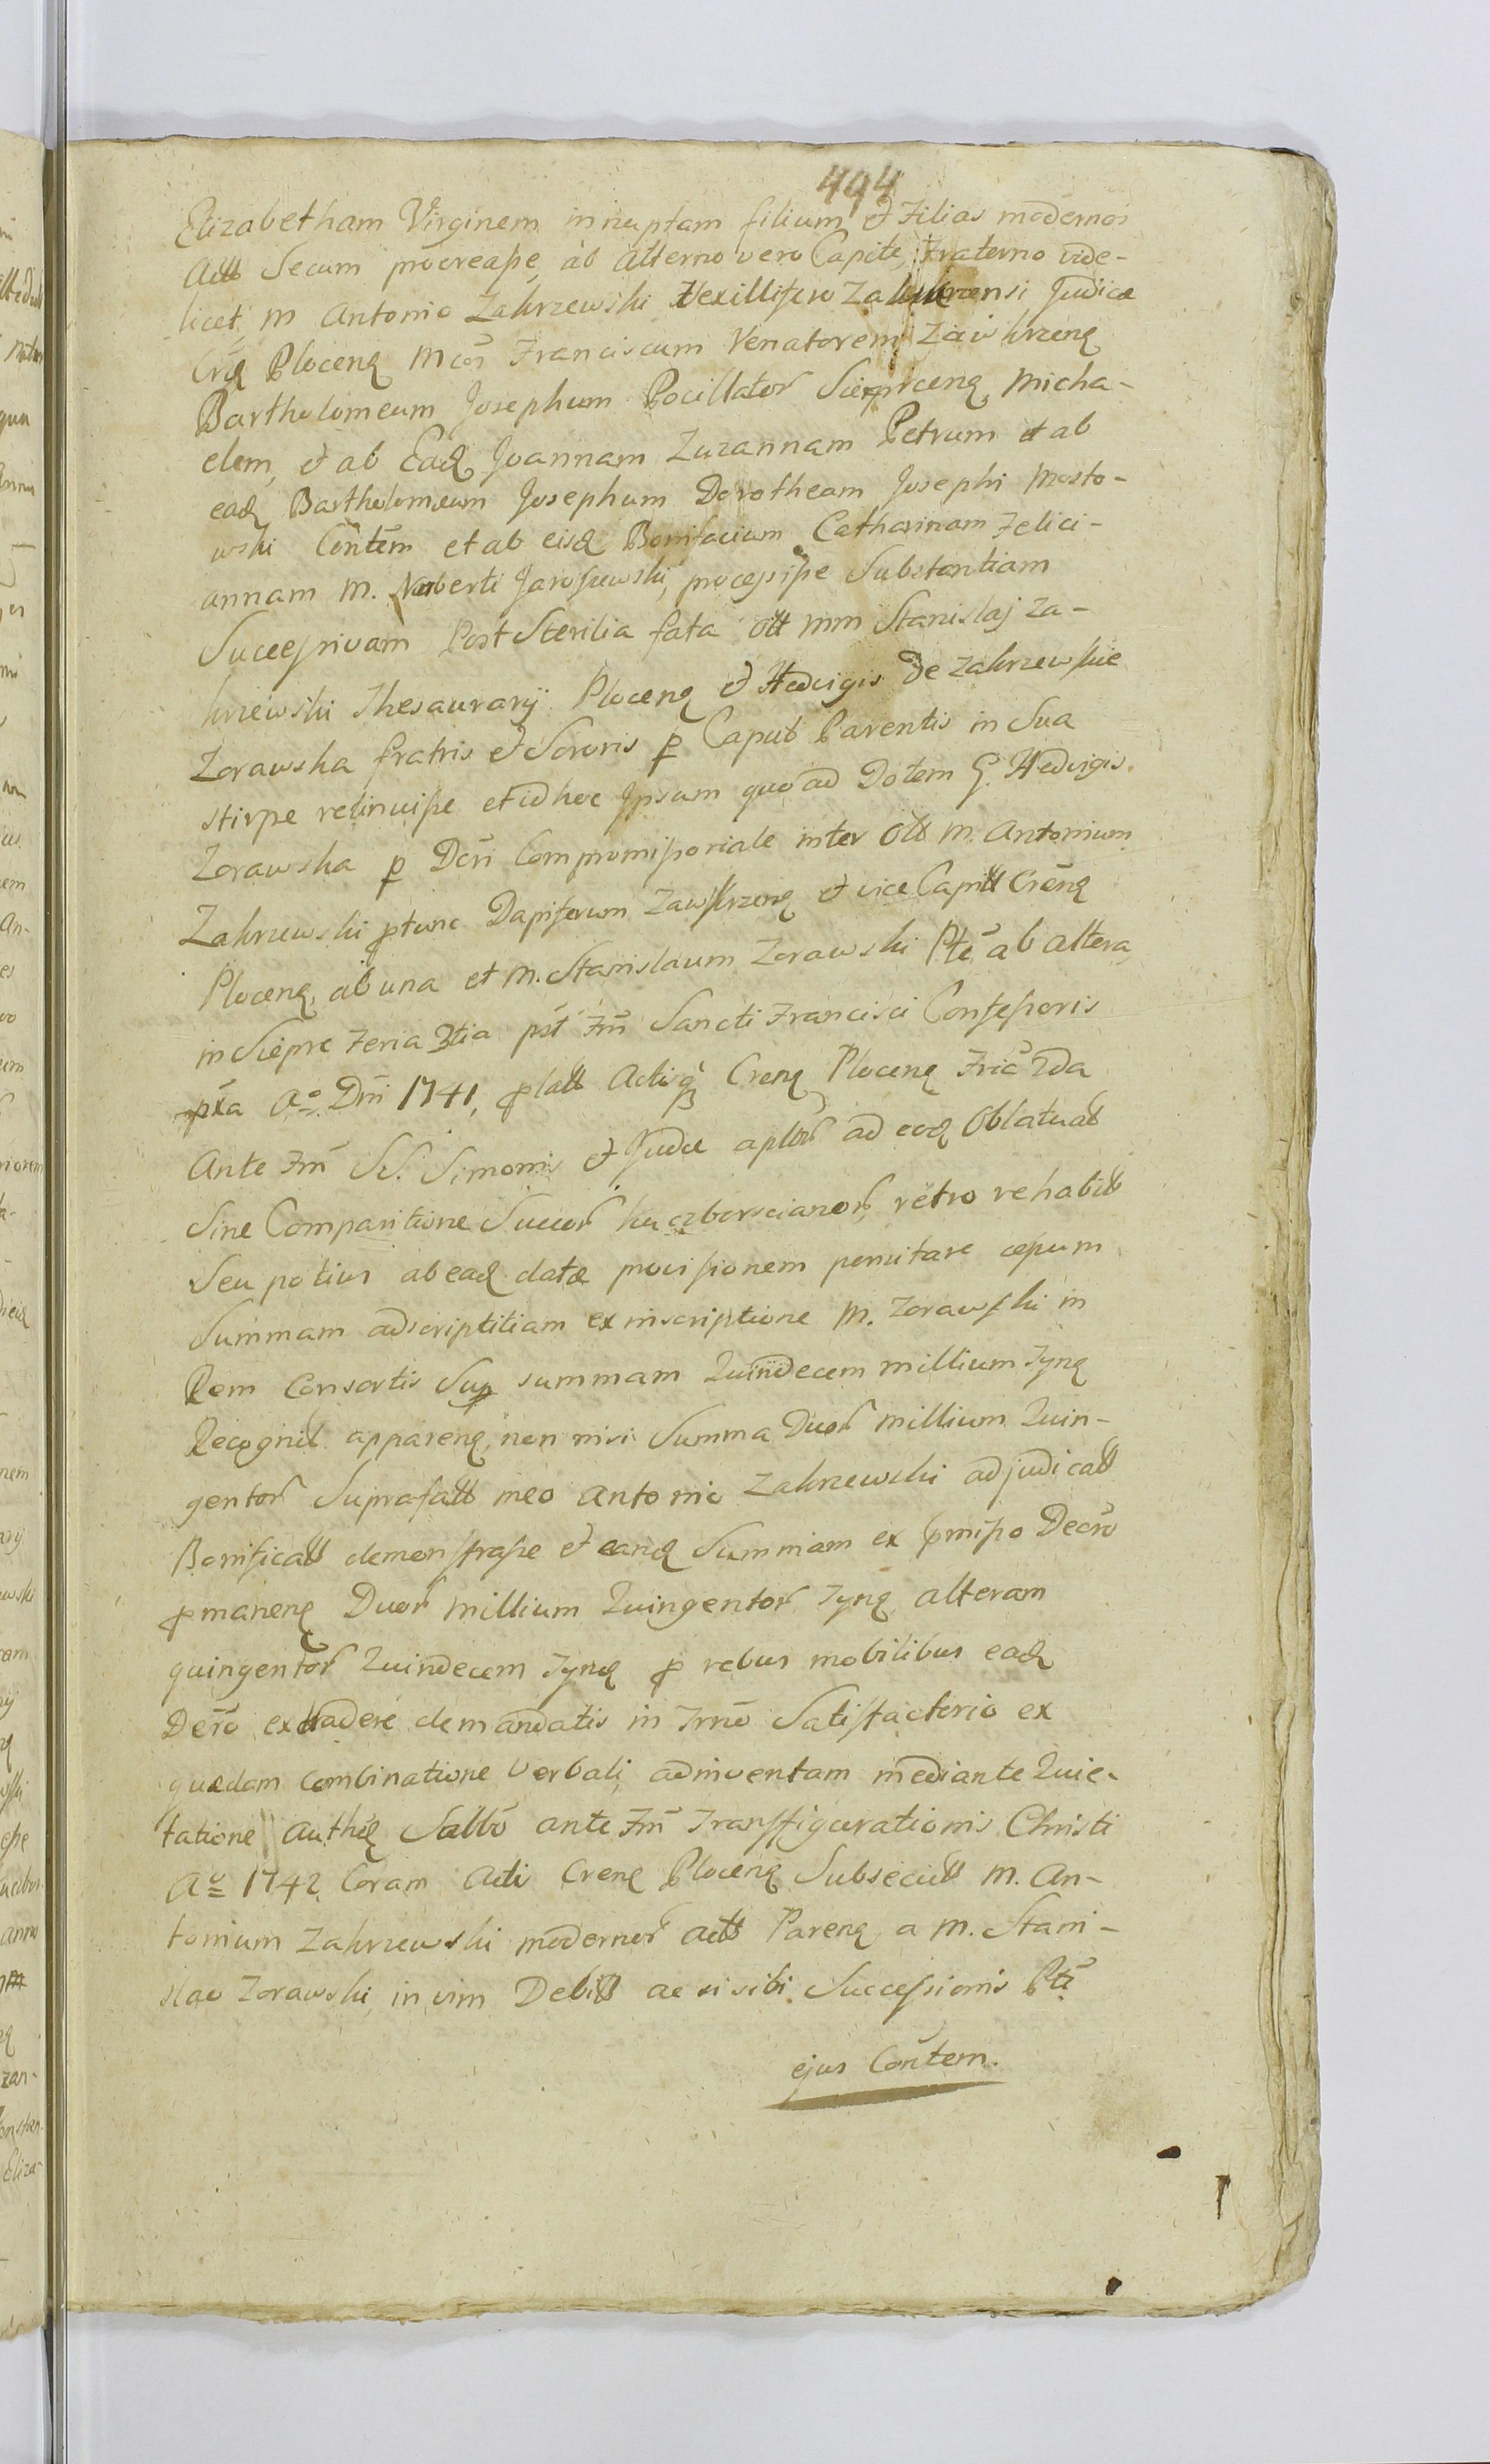 494
Elizabetham Virginem innuptam filium et Filias modernos
Actt Secum procrease, ab Alterno vero Capite, Fraterno vide-
licet, M Antonio Zakrzewski Vexillifero Zakrzensi Judice
Crq Plocenq Mcos Franciscum Venatorem Zawkrzenq
Bartholomeum Josephum Pocillator Sieprcenq, Micha-
elem, et ab Eadq Joannam Zuzannam Petrum et ab
eadq Bartholomeum Josephum Dorotheam Josephi Mosto-
wski Contem et ab eisdq Bonifacium Catharinam Felici-
annam M. Norberti Jaroszewski, processisse Substantiam
Successivam Post Sterilia fata Olt Mm Stanislaj Za-
krzewski Thesaurarij Plocenq et Hedvigis de Zakrzewskie
Zorawska fratris et Sororis p Caput Parentis in Sua
stirpe relinuisse et id hoc Ipsum quo ad Dotem G. Hedvigis
Zorawska p Dcri Compromissoriale inter Olt M. Antonium
Zakrzewski ptunc Dapiferum Zawkrzenq et vice Capitt Crenq
Plocenq, ab una et M. Stanislaum Zorawski Pte ab altera,
in Sieprc Feria 3tia pst Fm Sancti Francisci Confessoris
pxa Ao Dni 1741, platt Actisq Crenq Plocenq Fria 2da
Ante Fm SS. Simonis et Judae aplor ad eadq Oblatuatt
Sine Comparitione Succor Kuczborscianor, retro rehabitt
Seu potius ab eadq datae provisionem pernitare cessum
Summam adscriptitiam ex inscriptione M. Zorawski in
Rem Consortis Sup summam Quindecem millium Fynq
Recognit apparenq, non nisi Summa Duor millium Quin-
gentor Suprafatt meo Antonio Zakrzewski adjudicatt
Bonificatt demonstrasse et eandq Summam ex pmisso Decro
pmanenq Duor millium Quingentor Fynq, alteram
quingentor Quindecem Fynq p rebus mobilibus eadq
Decro extradere demandatis in Frno Satisfactorio ex
quadam combinatione Verbali, adinventam mediante Quie-
tatione Authq Sabbo ante Fm Transfigurationis Christi
Ao 1742 Coram Acti Crenq Plocenq Subsecutt M. An-
tonium Zakrzewski modernor Actt Parenq, a M. Stani-
slao Zorawski, in vim Debitt ac si sibi Successionis Pti
ejus Contem.